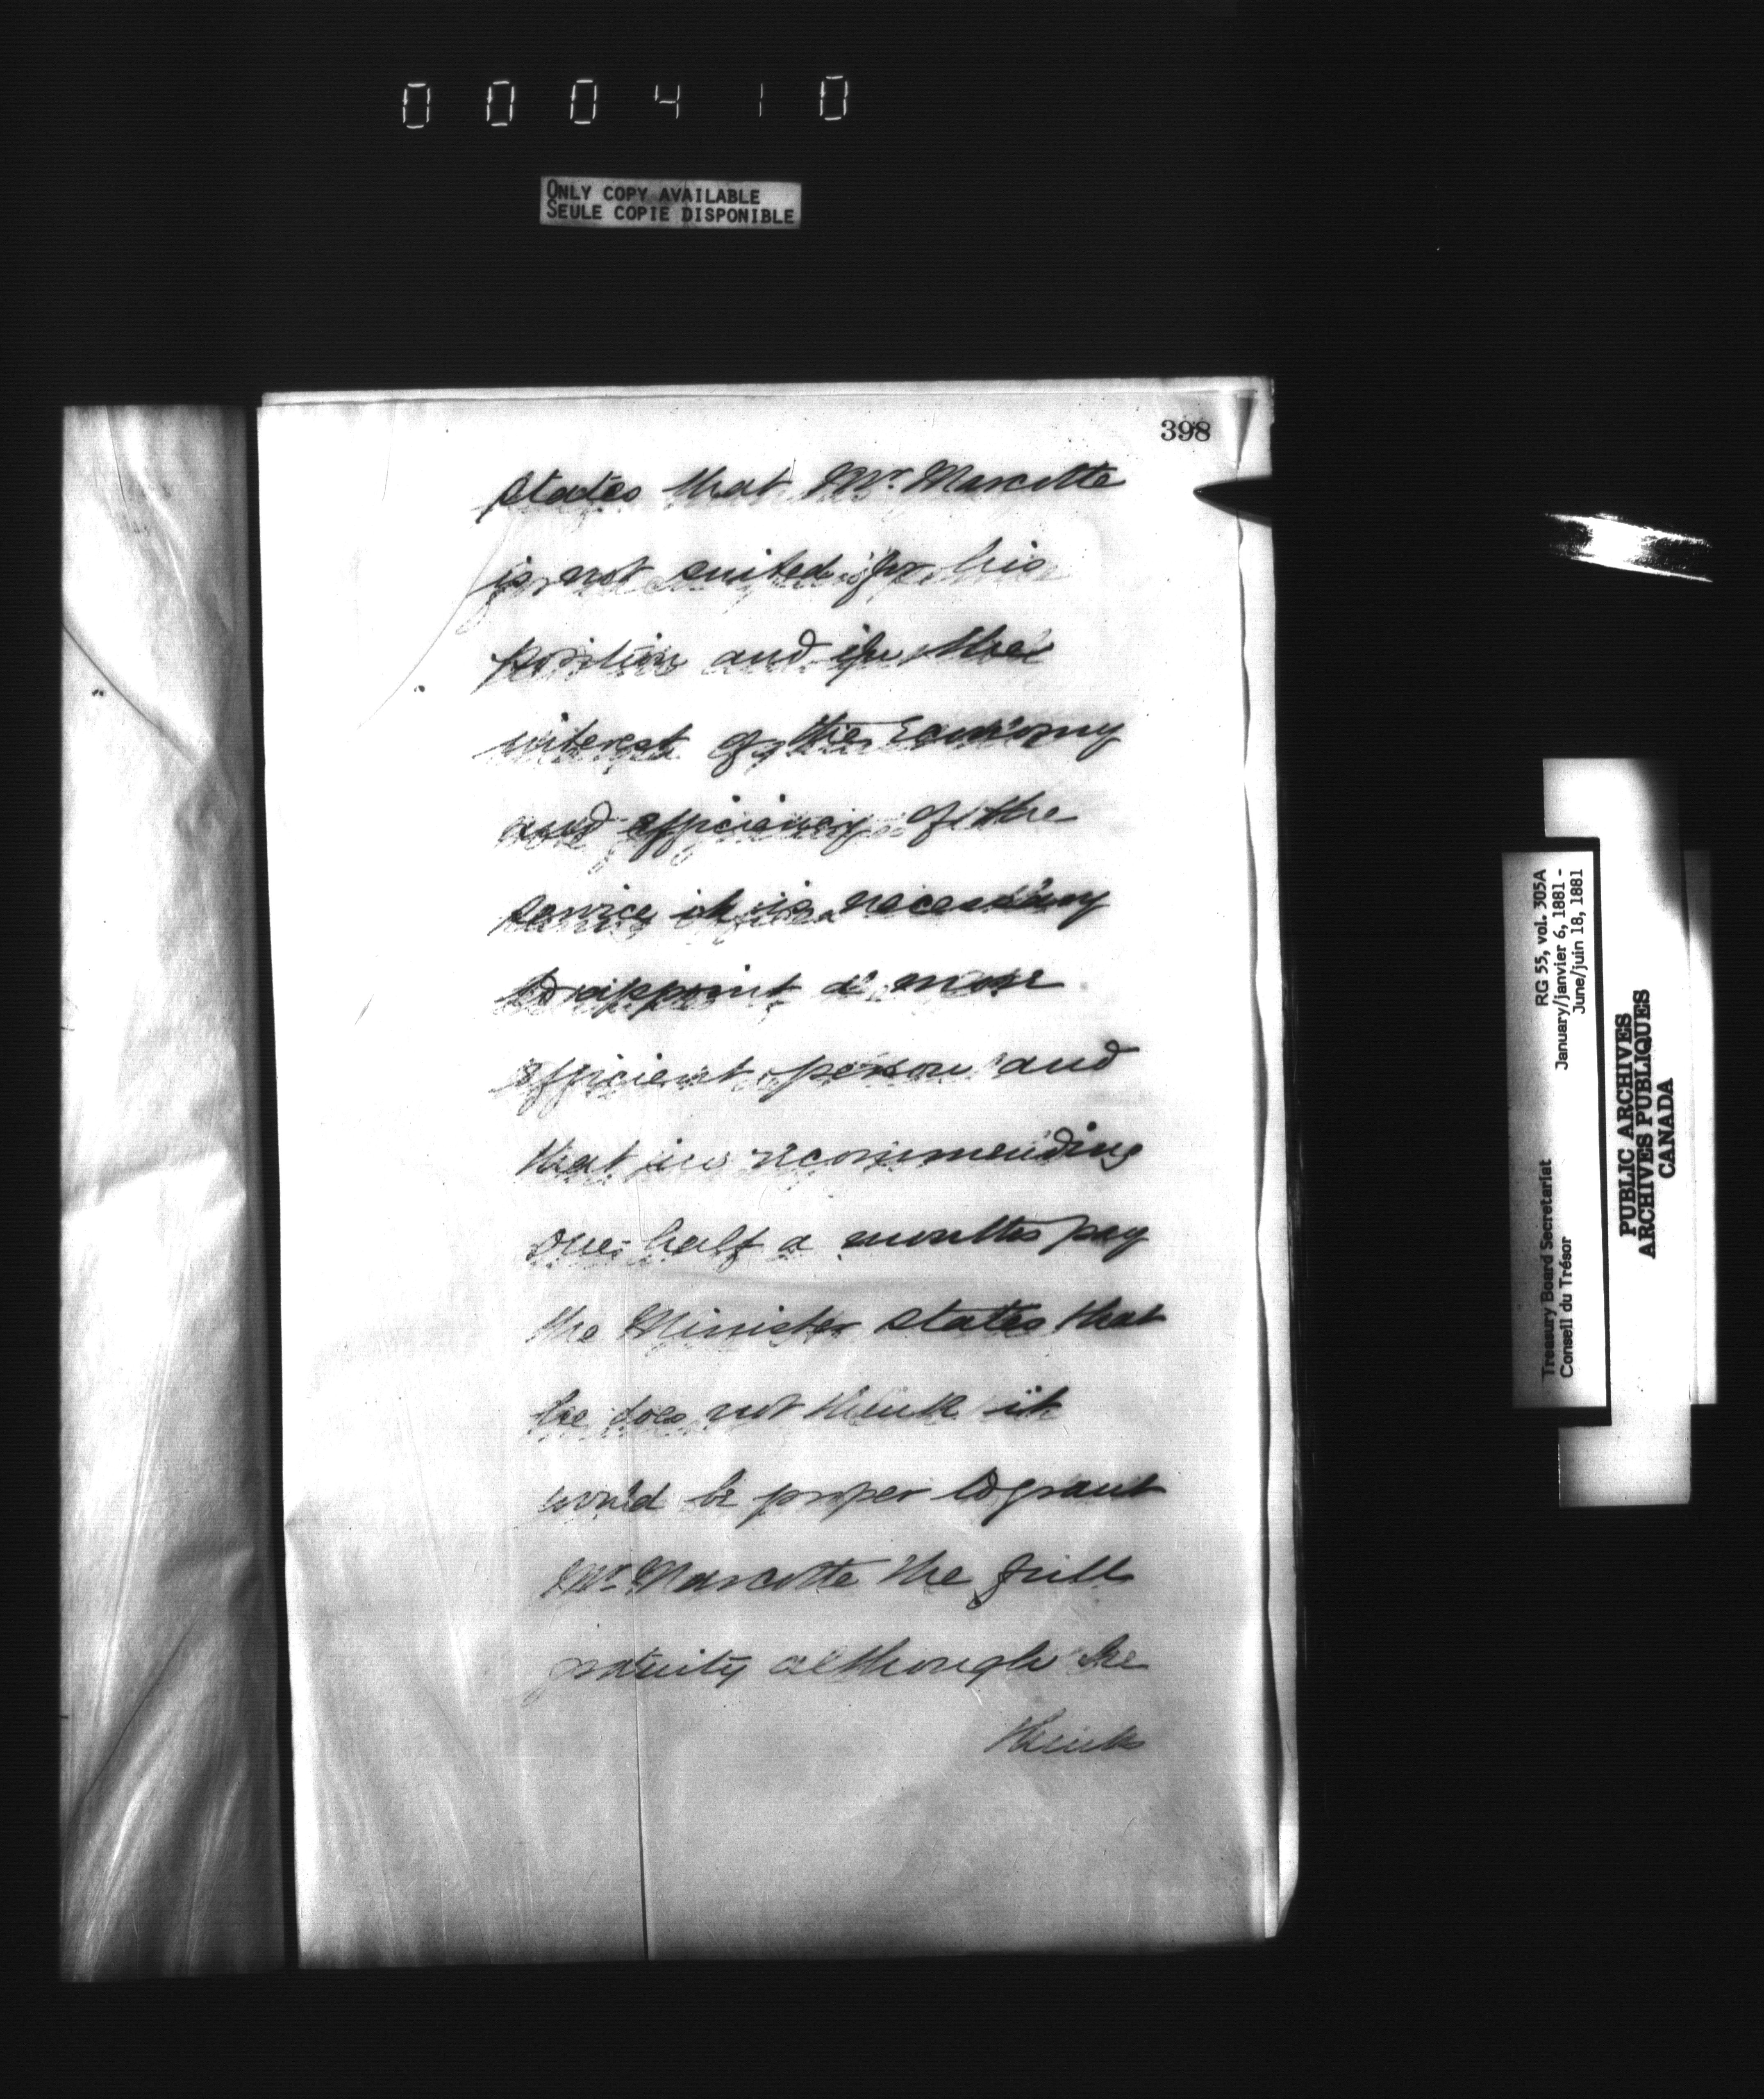 000410
ONLY COPY AVAILABLE
SEULE COPIE DISPONIBLE
398
states that Mr. Marcotte
is not suited for his
position and in the
interest of the Economy
and efficiency of the
service it is necessary
to appoint a more
efficient person and
that in recommending
one half a months pay
the Minister states that
he does not think it
would be proper to grant
Mr. Marcotte the full
gratuity although he
thinks
RG 55, vol. 305A
January/janvier 6, 1881 -
June/juin 18, 1881
Treasury Board Secretariat
Conseil du Trésor
PUBLIC ARCHIVES
ARCHIVES PUBLIQUES
CANADA